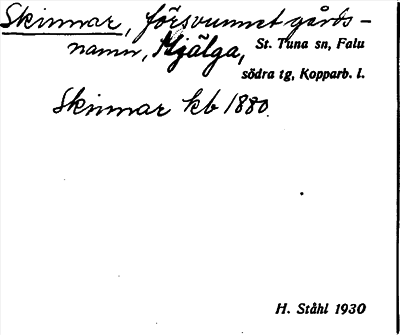 Skinnar, försvunnet gårds-
namn, Mjälga, St. Tuna sn, Falu
södra tg, Kopparb. l.
Skinnar kb 1880.
H. Ståhl 1930